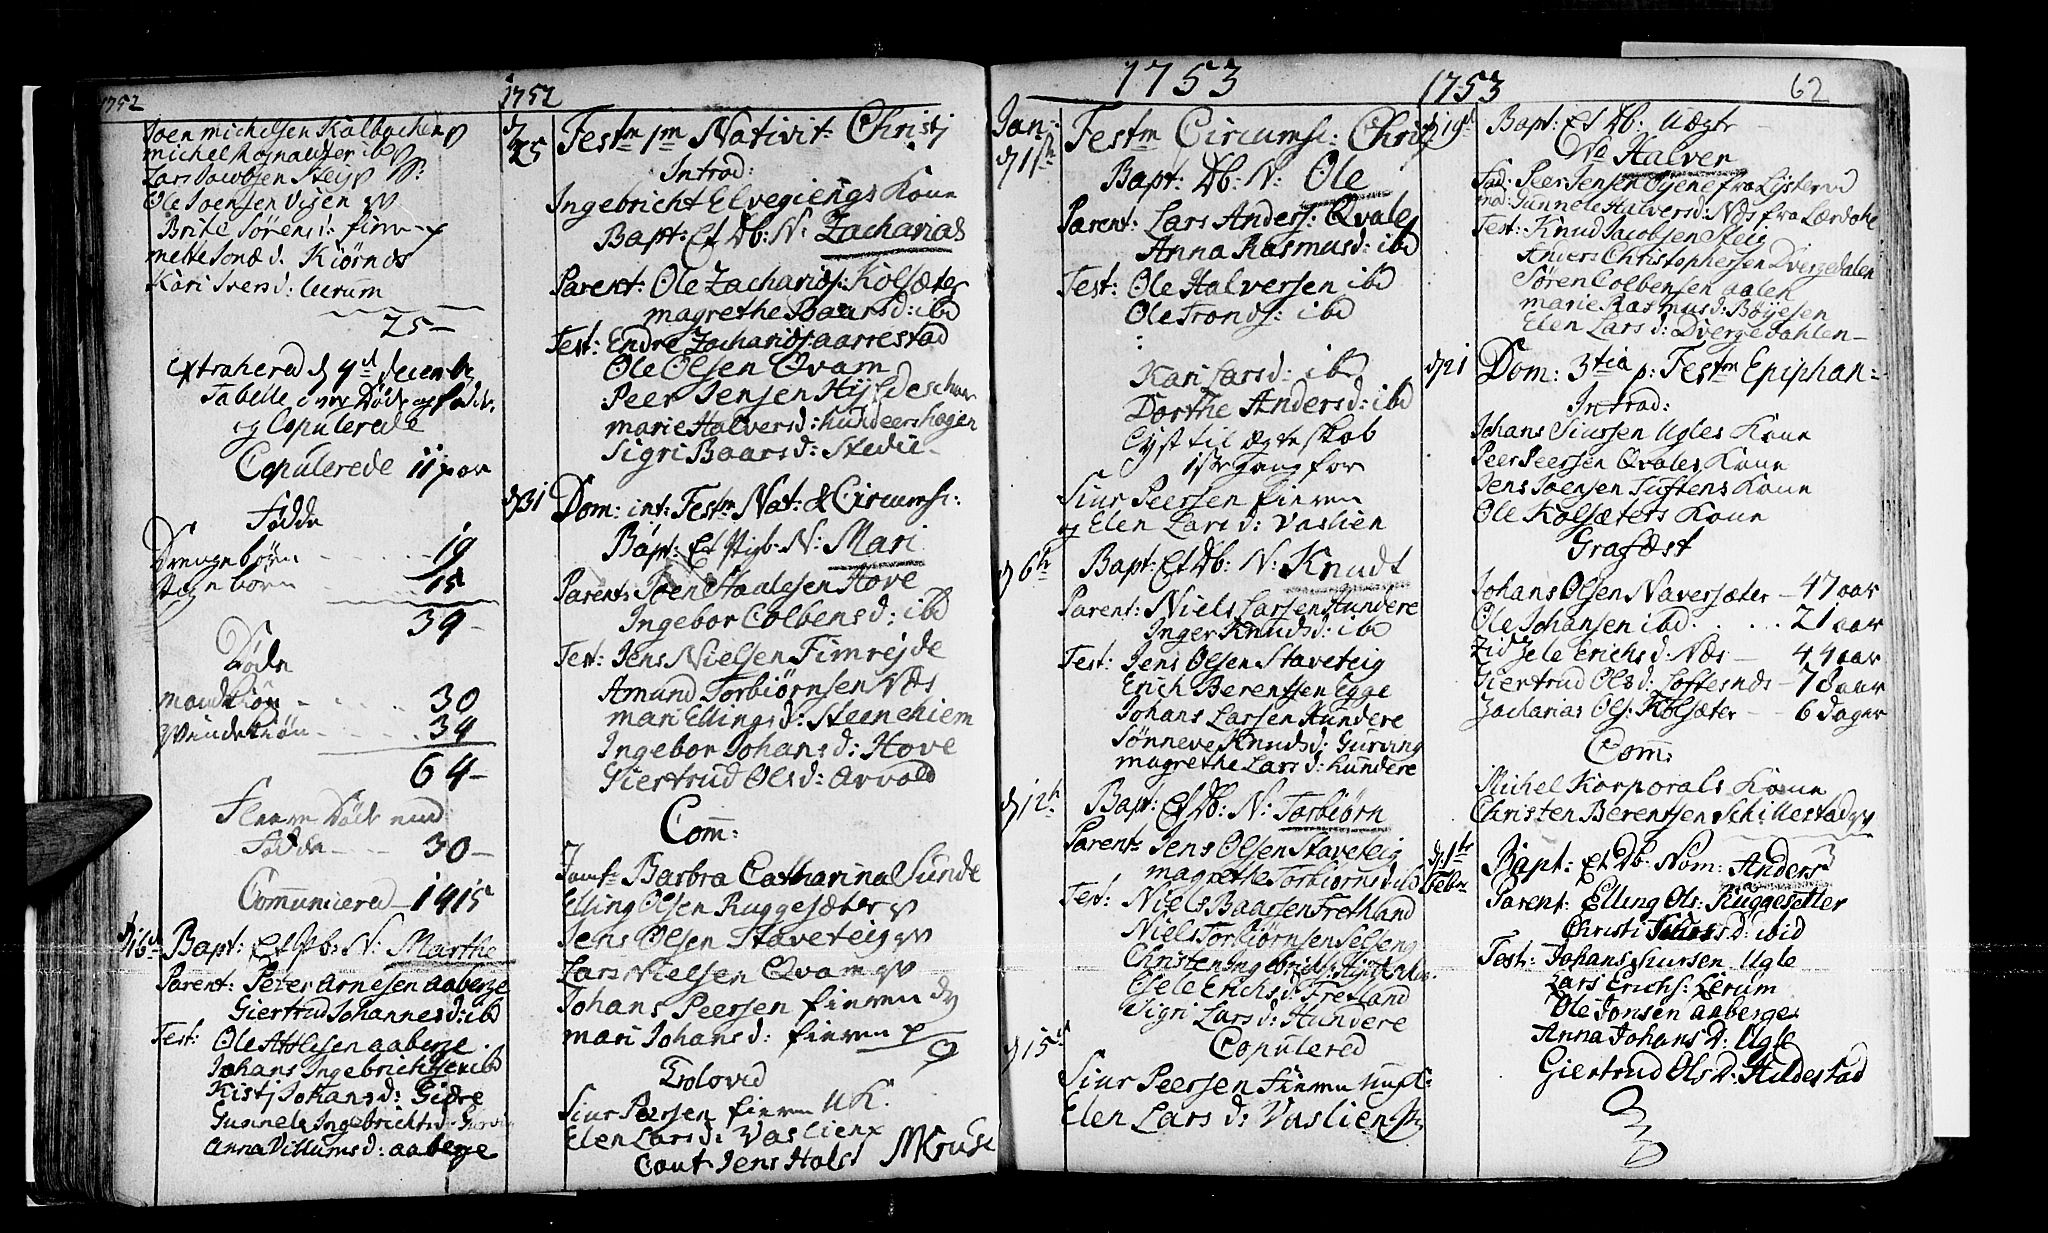 1752
Joen michelsen Kalbachen
michel Rognalder ib
Lars Jacobsen Steig
Ole Joensen Vigen
Brite Sørens: fim
mette Jonæd. Kiørnes
Kari Ivers d: Lerum
25 -
Extrahered d 4de decemb
Tabelle over Døde og fødde
og Copulerede
Copulerede 11 par
Fødde
Drengebørn 19
Pigebørn 15
39 -
Døde
mandkiøn 30
qvindekiøn 34
64 -
Fleere Døde end
Fødde 30 -
Communicered 1415
16 Bapt: Et Pb: N: Marthe
Parent: Peter Arnesen aaberge
Giertrud Johannesd: ibd
Test: Ole Attlesen aaberge
Johans Ingebrichtsen ibd
Kisti Johans d: Gidre
Gunnele Ingebrichts d:
Anna Villums d: aaberge
1752
25 Festm 1m Nativit: Christi
Introd:
Ingebricht Elvegiengs Kone
Bapt: Et Db: N: Zacharias
Parent: Ole Zacharias: Kolsæter
magrethe Baars d: ibd
Test: Endre Zacharias: aarrestad
Ole Olsen Qvam
Peer Jensen
marie Halvers d: hundeershogen
Sigri Baars d: Stedie
d 31 Dom: int: Festm Nat: & Circumsc:
Bapt: Et Pigb: N: Mari
Parent: Joen Haalesen Hove
Ingebor Colbens d: ibd
Test: Jens Nielsen Fimrejde
Amund Torbiørnsen Næs
mari Ellings d: Steenehiem
Ingebor Johans d: Hove
Giertrud Ols d: arvold
Comm:
Jomf: Barbra Catharina Sunde
Elling Olsen Ruggesæter
Jens Olsen Staveteig
Lars Nielsen Qvam
Johans Peersen fieren
mari Johans d: fieren
9
Trolovid
Siur Peersen fieren UK.
Elen Lars d: Vaslien
Caut Jens Holst MKruse
1753
Jan:
d 1ste Festm Circumsc: Christ
Bapt: Db: N: Ole
Parent: Lars Anders: Qvale
Anna Rasmus d: ibd
Test: Ole Halversen ibd
Ole Tronds: ibd
Kari Lars d: ibd
Dorthe Anders d: ibd
Lyst til ægteskab
1ste gang for
Siur Peersen fieren
og Elen Lars d: Vaslien
d 6te Bapt: Et Db: N: Knudt
Parent: Niels Larsen Hundere
Inger Knuds d: ibd
Test: Jens Olsen Staveteig
Erich Berentsen Egge
Johans Larsen Hundere
Sønneve Knuds d: Gurving
magrethe Lars d: hundere
d 12te Bapt: Et Db: N: Torbiørn
Parent: Jens Olsen Staveteig
magrethe Torbiørns d: ibd
Test: Niels Baarsen Fretland
Niels Torbiørnsen Selseng
Christen Ingebrichts:
Esele Erichs d: Fretland
Sigri Lars d: Hundere
d 15de Copulered
Siur Peersen Fieren
Elen Lars d: Vaslien
1753 62
d 19de Bapt: Et Db: Uægte
No Halver
Fad: Peer Jensen Øyene fra Lyster
mod: Gunnele Halvers d: Næs fra Lærdahl
Test: Knud Jacobsen Steig
Anders Christophersen Dvergedalen
Søren Colbensen aalen
marie Rasmus d: Bøyesen
Elen Lars d: Dvergedahlen
d 21 Dom: 3tia p: Festm Epiphan:
Introd:
Johans Siursen Ugles Kone
Peer Peersen Qvales Kone
Jens Joensen Tuftens Kone
Ole Kolsæters Kone
Grafæst
Johans Olsen Naversæter - 47 aar
Ole Johansen ibd 21 aar
Zidsele Erichs d: Næs - 44 aar
Giertrud Ols d: Loftesnes - 78 aar
Zacharias Ols: Kolsæter 6 dager
Comm:
Michel Korporals Kone
Christen Berentsen Schillestad
d: 1te Febr Bapt: Et Db. Nom: Anders
Parent: Elling Ols: Ruggesetter
Christi d: ibid
Test: Johans Siursen Ugle
Lars Erichs: Lerum
Ole Jonsen aaberge
Anna Johans D: Ugle
Giertrud Ols D: Hildestad